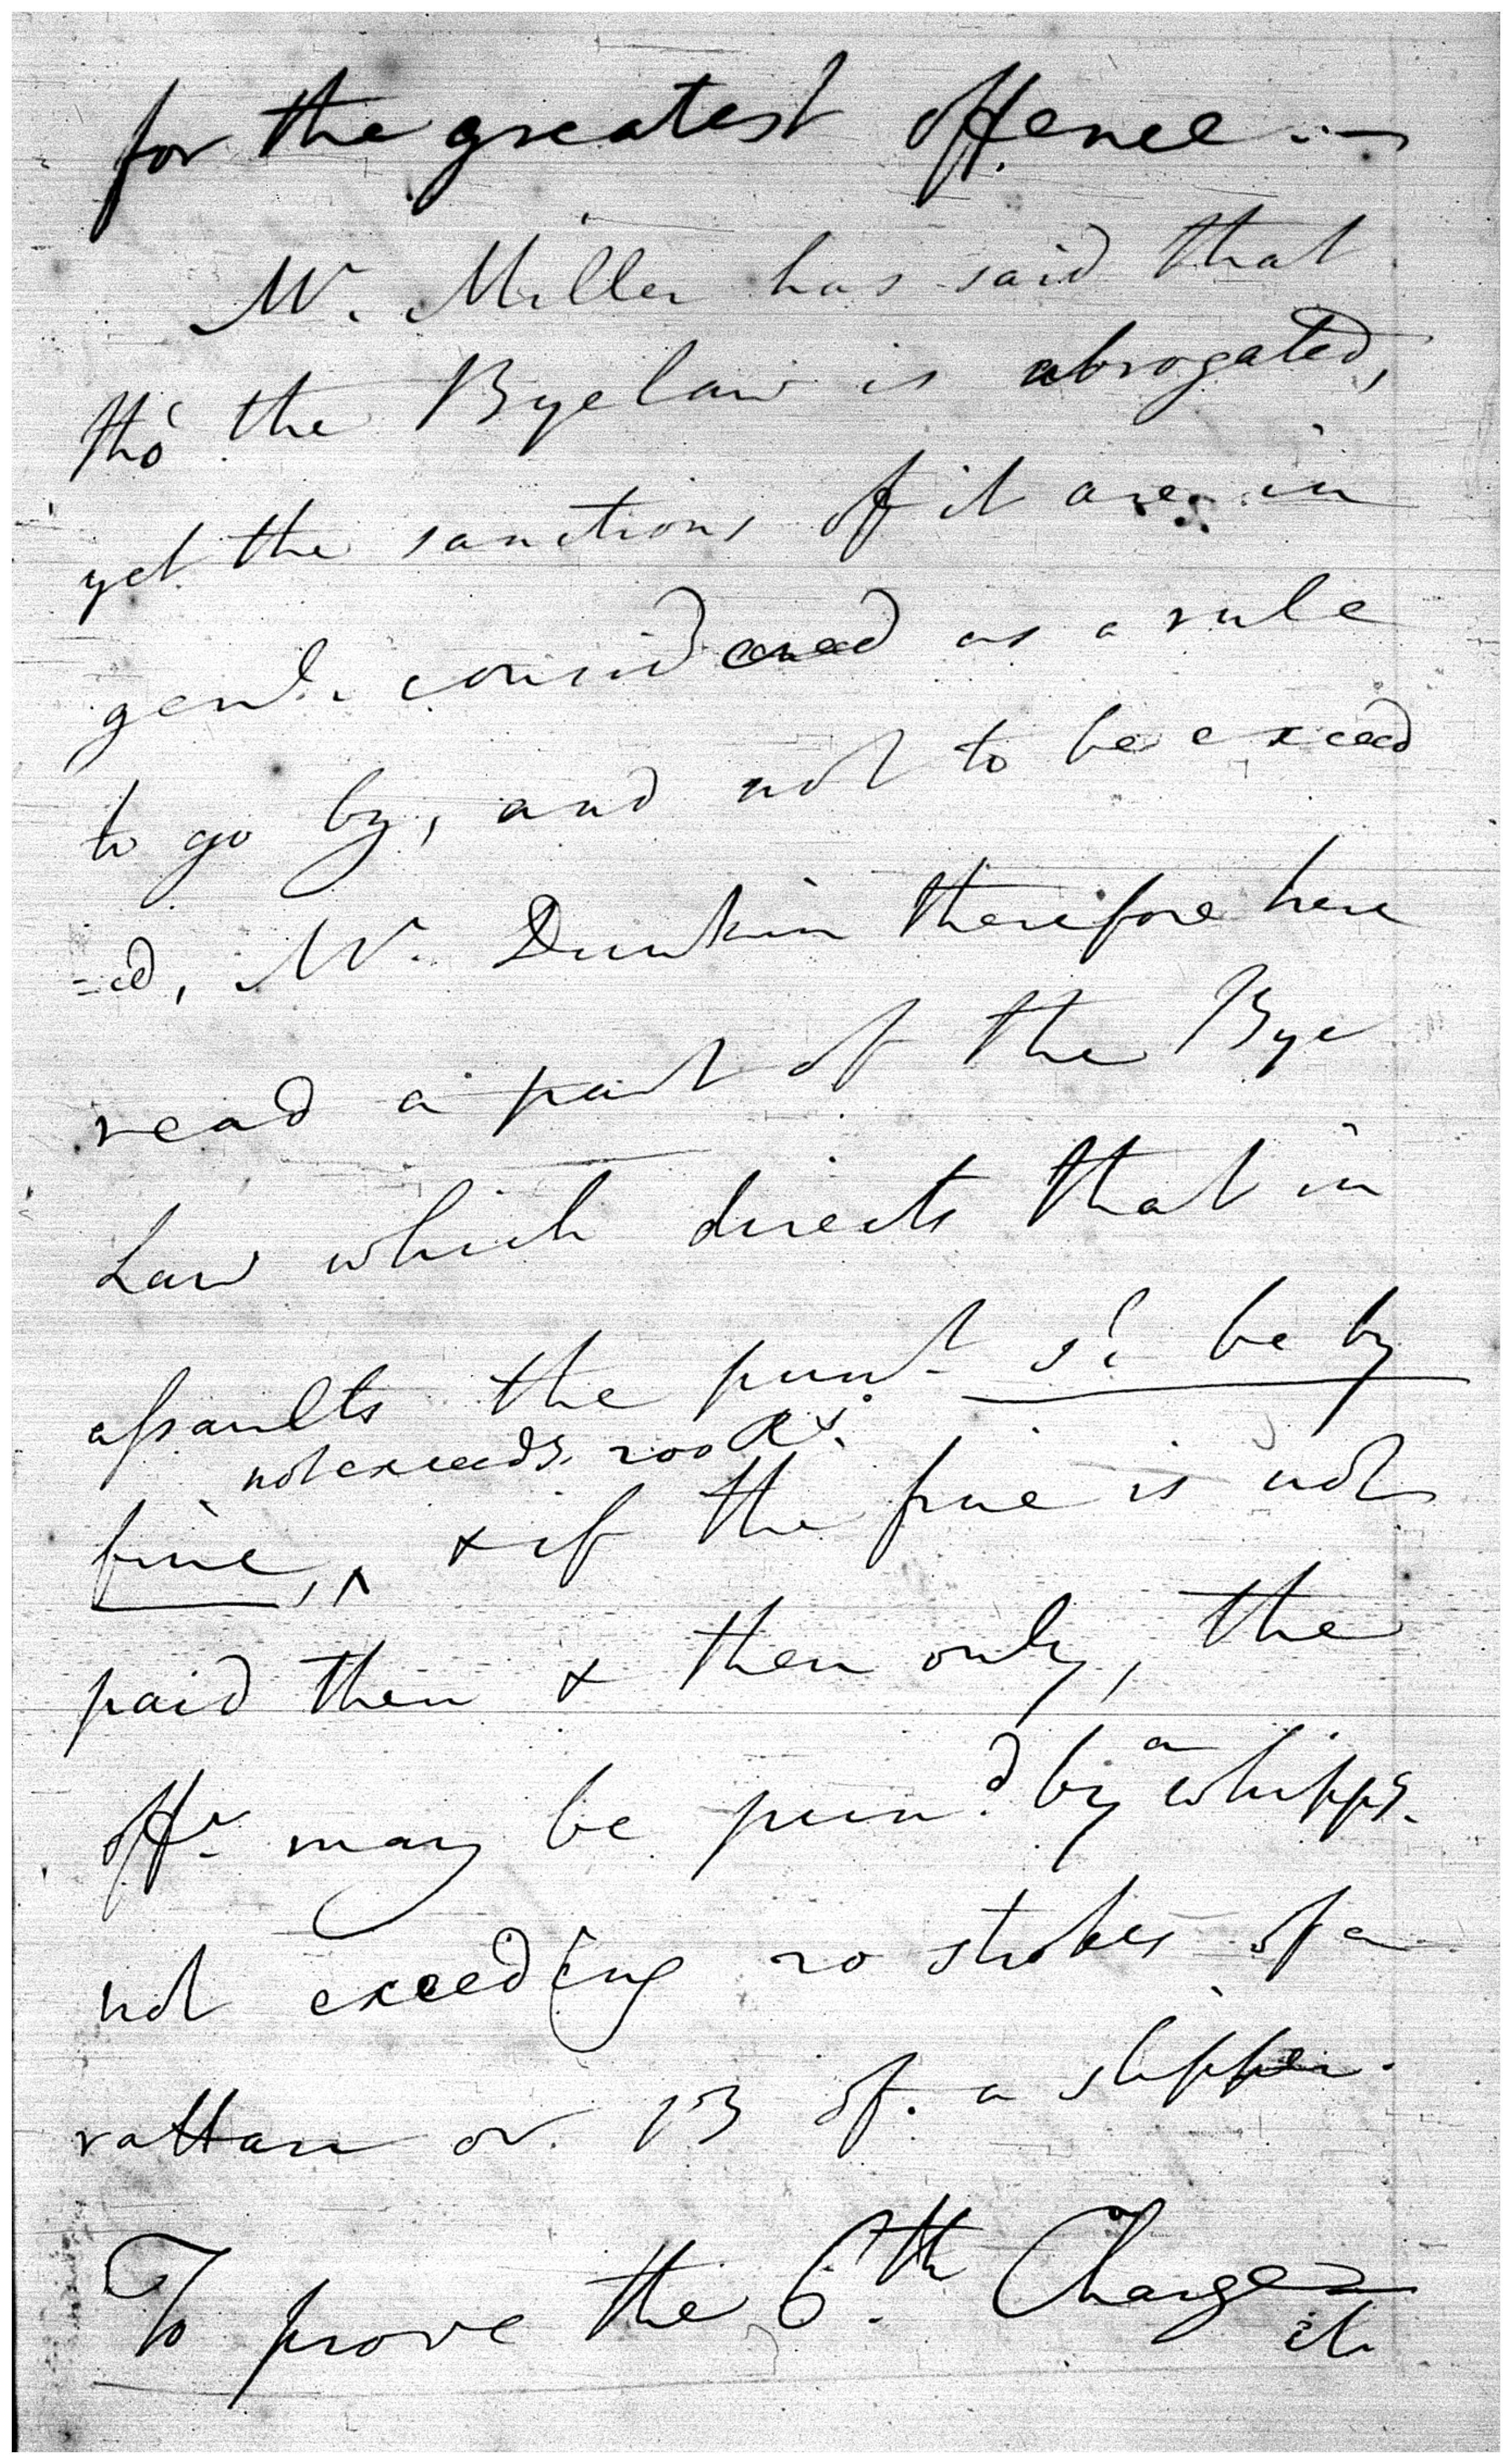 for the greatest offence.—
Mr. Miller has said that
tho' the Byelaw is abrogated,
yet the sanctions of it are in
genl. considered as a rule
to go by, and not to be exceed
=ed, Mr. Dunkin therefore here
read a part of the Bye
Law which directs that in
assaults the punt. sd. be by
not exceedg. 200 Rs.
fine, ^ & if the fine is not
paid then & then only, the
offr. may be pund. by a whippg.
not exceeding 20 strokes of a
rattan or 13 of a slipper.
To prove the 6.th Charge
it